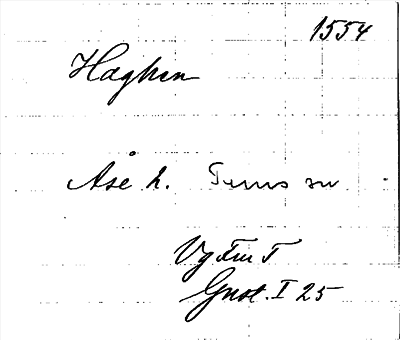 1554
Haghen
Åse h. Tuns sn
Vg Fru T
Gnot. I 25